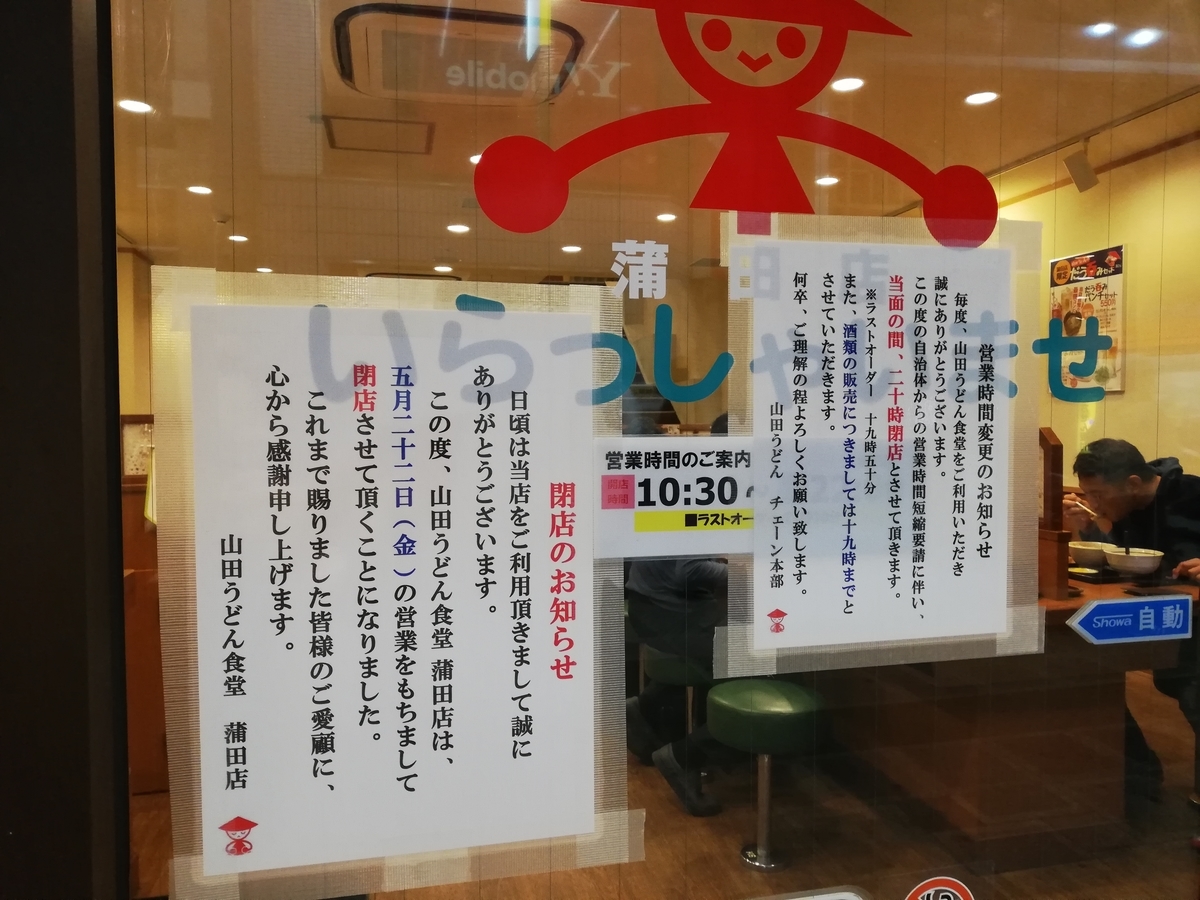 Y!mobile
蒲田店
いらっしゃませ
閉店のお知らせ
日頃は当店をご利用頂きまして誠に
ありがとうございます。
この度、山田うどん食堂 蒲田店は、
五月二十二日（金）の営業をもちまして
閉店させて頂くことになりました。
これまで賜りました皆様のご愛顧に、
心から感謝申し上げます。
山田うどん食堂 蒲田店
営業時間のご案内
開店時間
10:30～
■ラストオー
営業時間変更のお知らせ
毎度、山田うどん食堂をご利用いただき
誠にありがとうございます。
この度の自治体からの営業時間短縮要請に伴い、
当面の間、二十時閉店とさせて頂きます。
※ラストオーダー 十九時五十分
また、酒類の販売につきましては十九時までと
させていただきます。
何卒、ご理解の程よろしくお願い致します。
山田うどん チェーン本部
Showa 自動